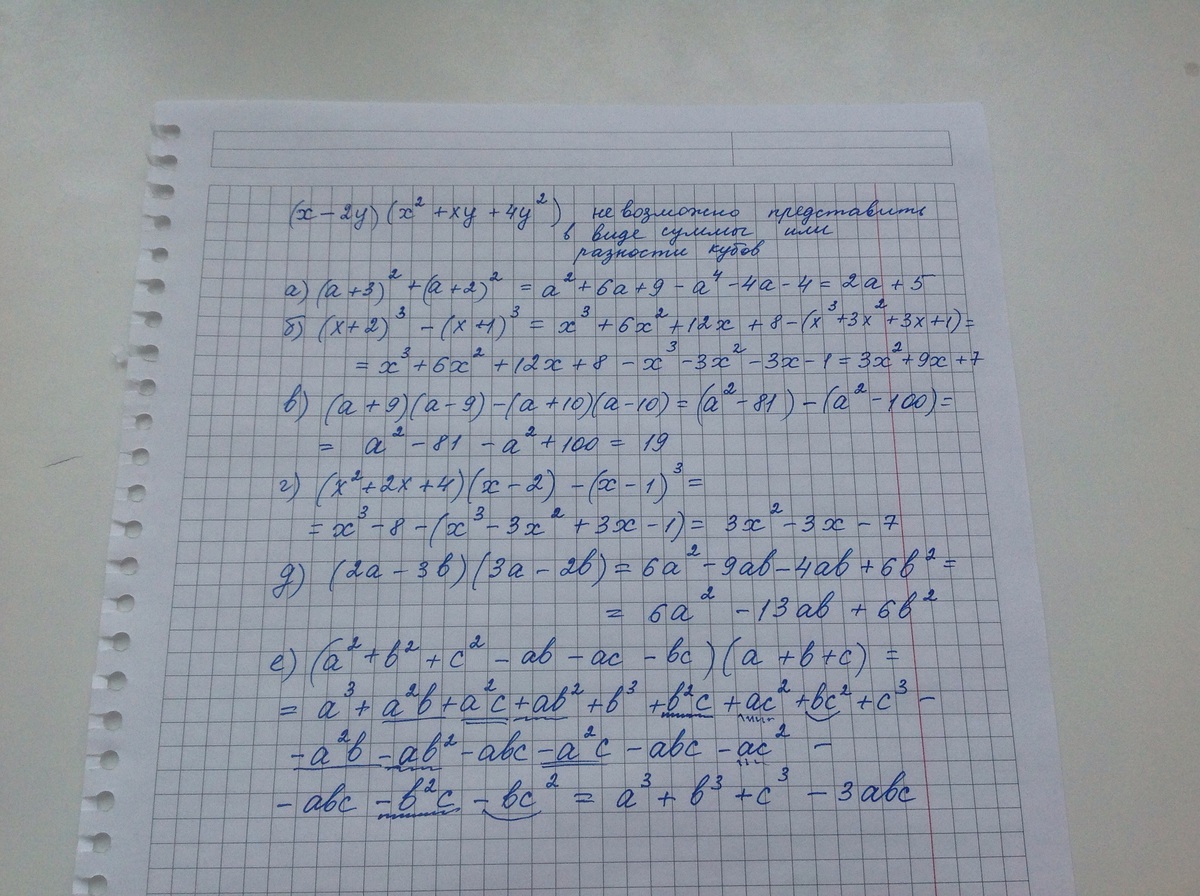 (x-2y)(x²+xy+4y²) не возможно представить
в виде суммы или
разности кубов
а) (a+3)²+(a+2)² = a²+6a+9-a⁴-4a-4=2a+5
б) (x+2)³-(x+1)³ = x³+6x²+12x+8-(x³+3x²+3x+1)=
= x³+6x²+12x+8-x³-3x²-3x-1=3x²+9x+7
в) (a+9)(a-9)-(a+10)(a-10)=(a²-81)-(a²-100)=
= a²-81-a²+100=19
г) (x²+2x+4)(x-2)-(x-1)³=
=x³-8-(x³-3x²+3x-1)= 3x²-3x-7
д) (2a-3b)(3a-2b)=6a²-9ab-4ab+6b²=
= 6a²-13ab+6b²
е) (a²+b²+c²-ab-ac-bc)(a+b+c)=
= a³+a²b+a²c+ab²+b³+b²c+ac²+bc²+c³-
-a²b-ab²-abc-a²c-abc-ac²-
-abc-b²c-bc² = a³+b³+c³-3abc